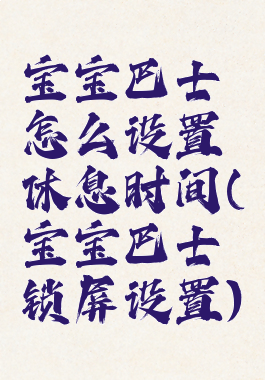 宝宝巴士
怎么设置
休息时间(
宝宝巴士
锁屏设置)